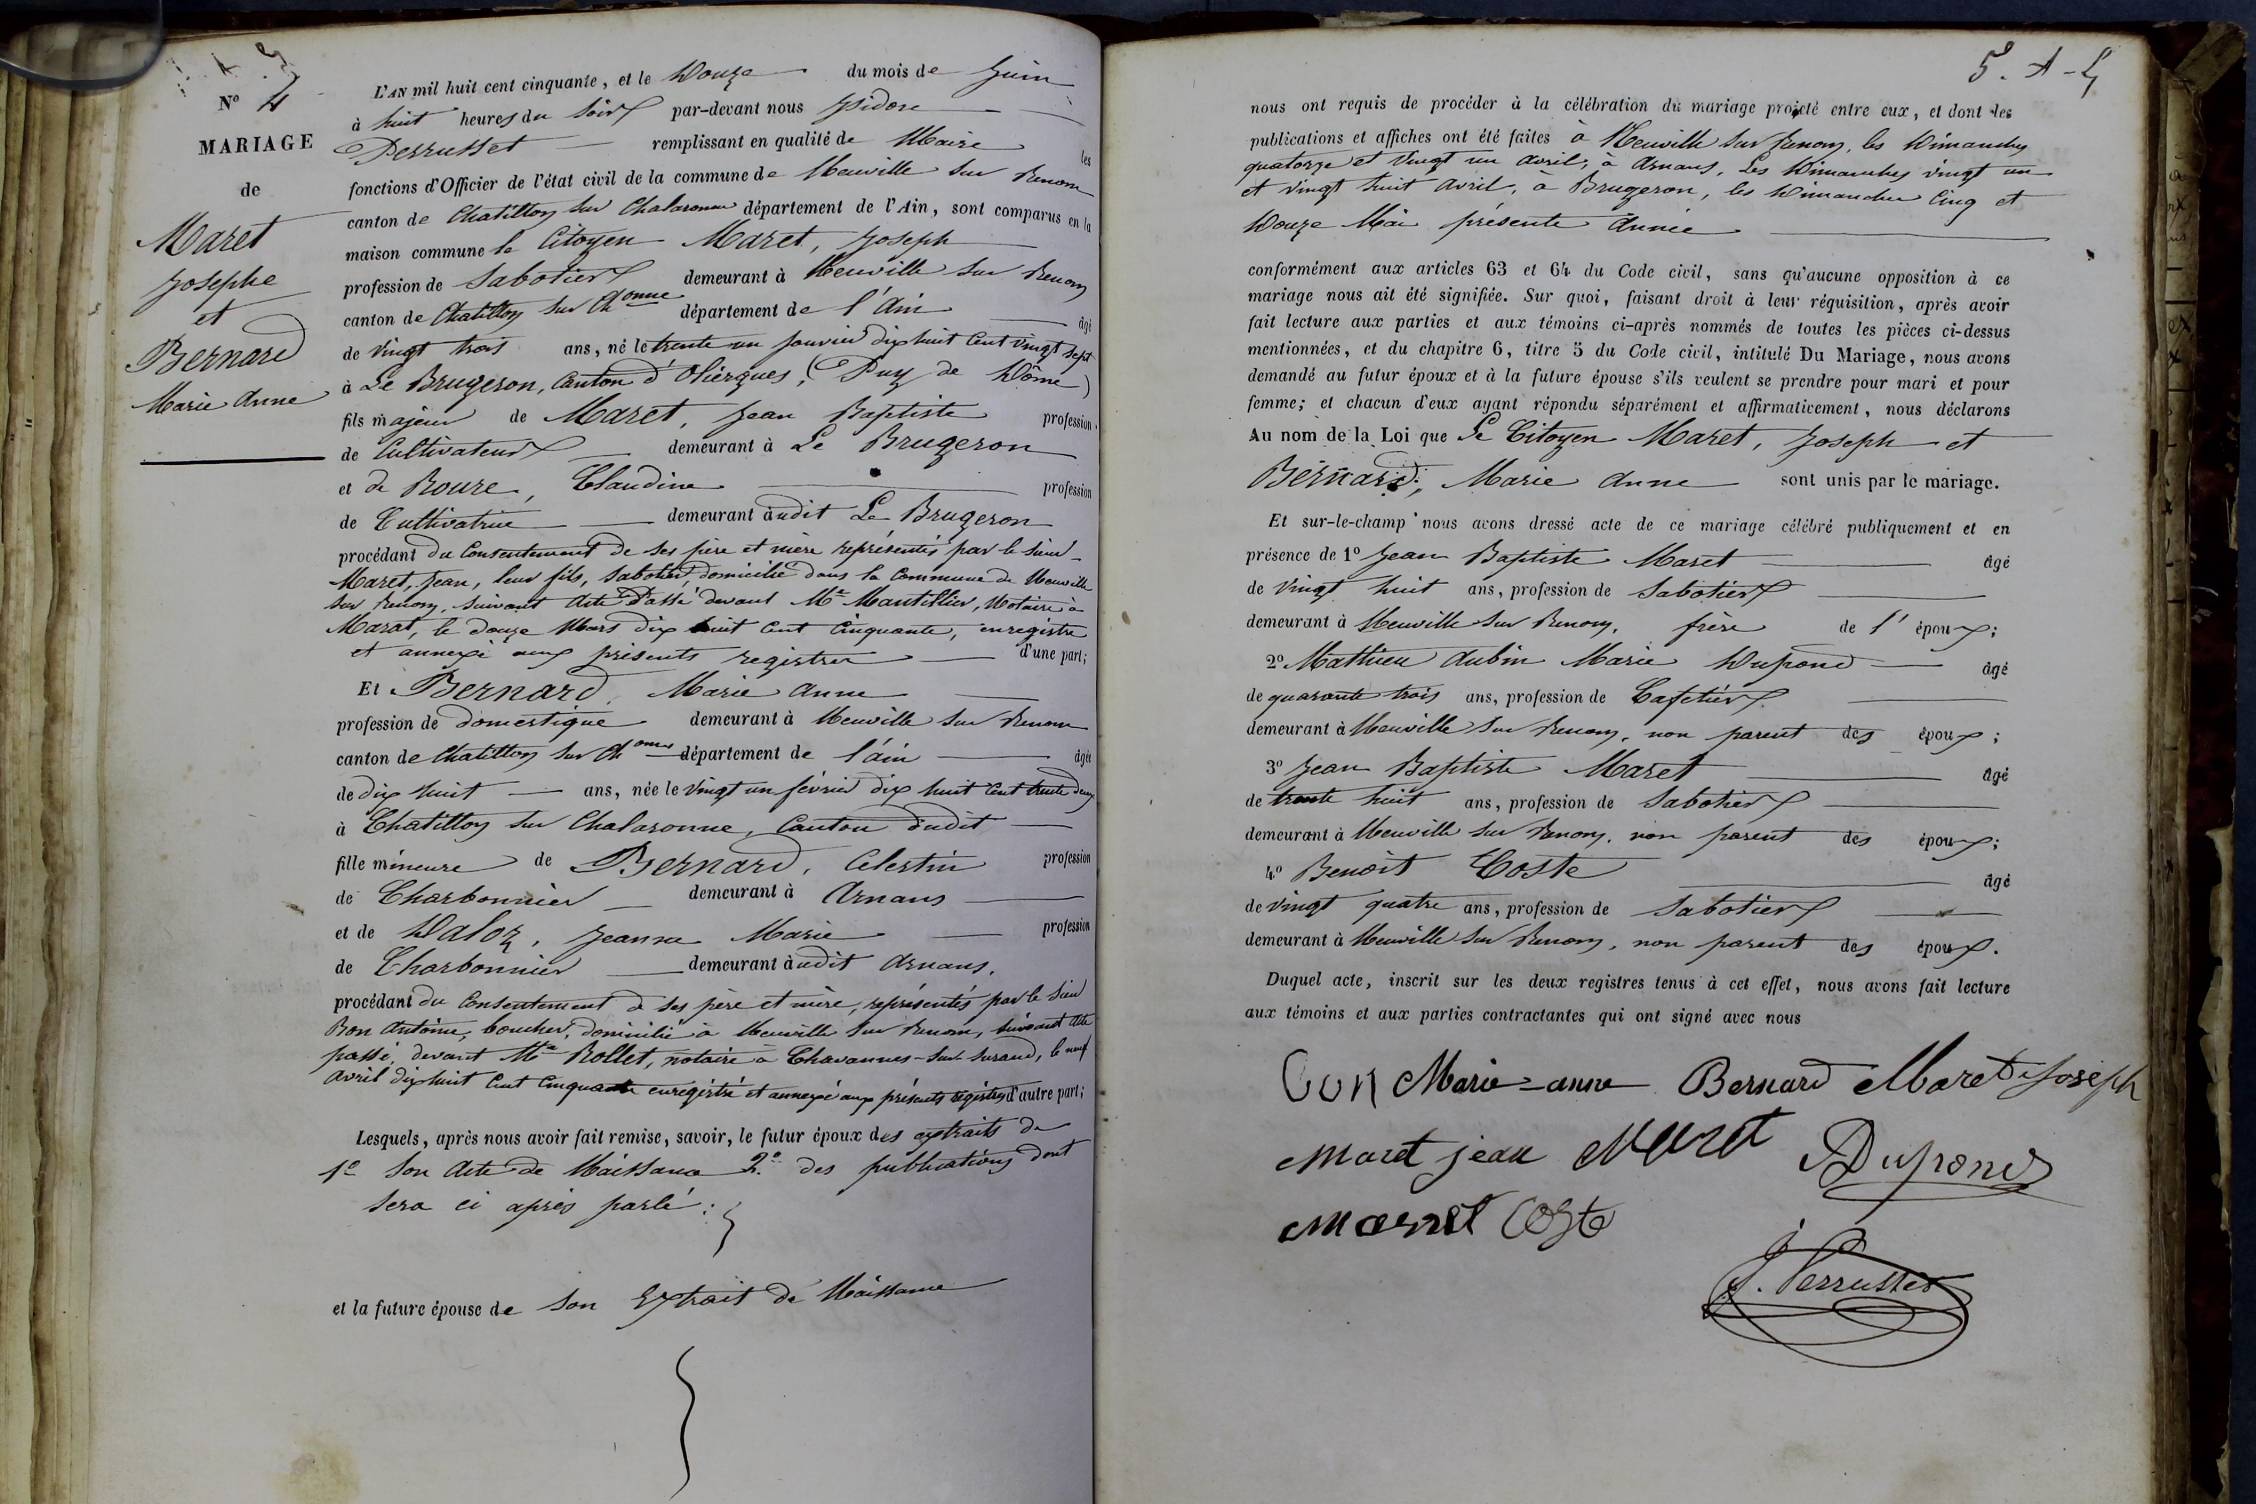 N° 4
MARIAGE
de
Maret
Josephe
et
Bernard
Marie Anne
L'AN mil huit cent cinquante, et le Douze du mois de Juin
à huit heures du Soir par-devant nous Isidore
Perrusset remplissant en qualité de Maire les
fonctions d'Officier de l'état civil de la commune de Neuville sur Renom
canton de Chatillon sur Chalaronne département de l'Ain, sont comparus en la
maison commune le Citoyen Maret, Joseph
profession de Sabotier demeurant à Neuville sur Renom
canton de Chatillon sur Chonne département de l'Ain âgé
de vingt trois ans, né le trente un Janvier dix huit Cent vingt sept
à Le Brugeron, Canton d'Oliergues, (Puy de Dôme)
fils majeur de Maret, Jean Baptiste profession
de Cultivateur demeurant à Le Brugeron
et de Roure, Claudine profession
de Cultivatrice demeurant audit Le Brugeron
procédant du Consentement de ses père et mère représentés par le sieur
Maret, Jean, leur fils, Sabotier, domicilié dans la Commune de Neuville
sur Renom, suivant Acte Passé devant Me Mantillier, Notaire à
Marat, le douze Mars dix huit Cent Cinquante, enregistré
et annexé aux présents registres d'une part;
Et Bernard, Marie Anne
profession de domestique demeurant à Neuville sur Renom
canton de Chatillon sur Chonne département de l'ain âgée
de dix huit ans, née le vingt un février dix huit Cent trente deux
à Chatillon sur Chalaronne, Canton dudit
fille mineure de Bernard, Célestin profession
de Charbonnier demeurant à Arnans
et de Daloz, Jeanne Marie profession
de Charbonnier demeurant audit Arnans,
procédant du Consentement de ses père et mère, représentés par le Sieur
Bon Antoine, boucher, domicilié à Neuville sur Renom, suivant Acte
passé, devant Me Rollet, notaire à Chavannes-sur-Surand, le neuf
Avril dix huit Cent Cinquante enregistré et annexé aux présents registres d'autre part;
Lesquels, après nous avoir fait remise, savoir, le futur époux des extraits de
1° Son Acte de Naissance 2° des publications dont
sera ci après parlé:
et la future épouse de son Extrait de Naissance
5. A-4
nous ont requis de procéder à la célébration du mariage projeté entre eux, et dont les
publications et affiches ont été faites à Neuville sur Renom, les Dimanches
quatorze et Vingt un Avril, à Arnans, Les Dimanches vingt un
et vingt huit Avril, à Brugeron, les Dimanches Cinq et
Douze Mai présente Année
conformément aux articles 63 et 64 du Code civil, sans qu'aucune opposition à ce
mariage nous ait été signifiée. Sur quoi, faisant droit à leur réquisition, après avoir
fait lecture aux parties et aux témoins ci-après nommés de toutes les pièces ci-dessus
mentionnées, et du chapitre 6, titre 5 du Code civil, intitulé Du Mariage, nous avons
demandé au futur époux et à la future épouse s'ils veulent se prendre pour mari et pour
femme; et chacun d'eux ayant répondu séparément et affirmativement, nous déclarons
Au nom de la Loi que Le Citoyen Maret, Joseph et
Bernard, Marie Anne sont unis par le mariage.
Et sur-le-champ nous avons dressé acte de ce mariage célébré publiquement et en
présence de 1° Jean Baptiste Maret âgé
de vingt huit ans, profession de Sabotier
demeurant à Neuville sur Renom, frère de l'époux;
2° Mathieu Aubin Marie Dupond âgé
de quarante trois ans, profession de Cafetier
demeurant à Neuville sur Renom, non parent des époux;
3° Jean Baptiste Maret âgé
de trente huit ans, profession de Sabotier
demeurant à Neuville sur Renom, non parent des époux;
4° Benoît Coste âgé
de vingt quatre ans, profession de Sabotier
demeurant à Neuville sur Renom, non parent des époux.
Duquel acte, inscrit sur les deux registres tenus à cet effet, nous avons fait lecture
aux témoins et aux parties contractantes qui ont signé avec nous
bon Marie-anne Bernard Maret joseph
Maret jean Maret Dupond
Marret Coste
J. Perrusset